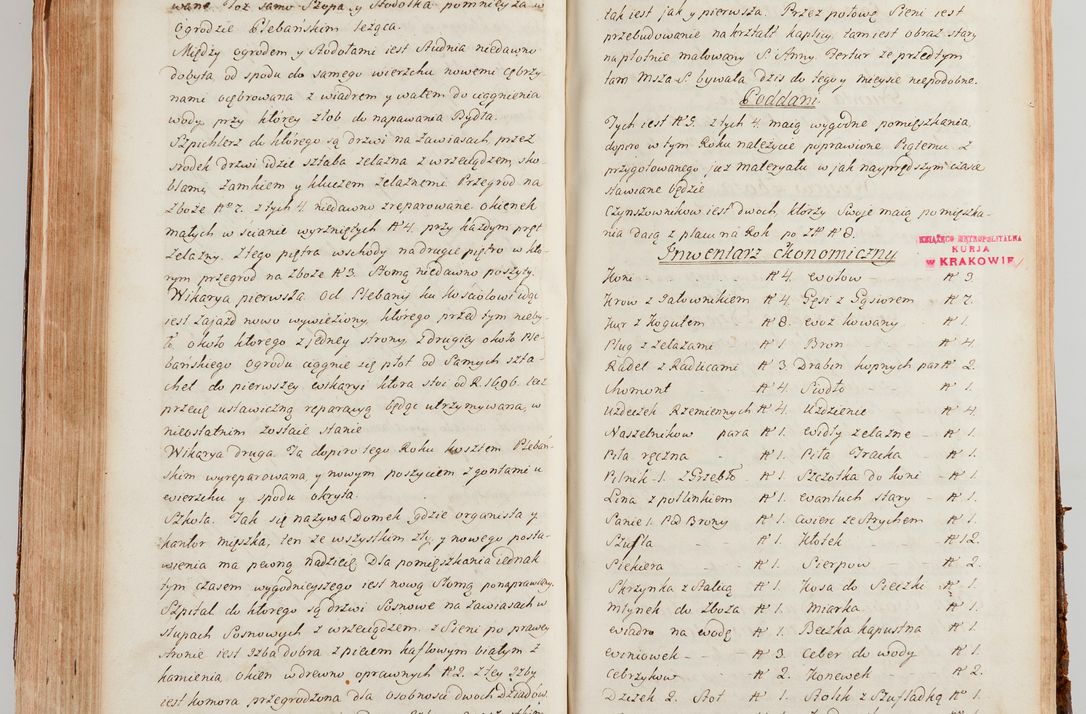 wane. Toż samo Szopa, y Stodołka pomnieysza w
Ogrodzie Plebańskim leżąca.
Między ogrodem y Stodołami iest Studnia niedawno
dobyta, od spodu do samego wierzchu nowemi cębrzy-
nami ocębrowana z wiadrem y wałem do ciągnienia
wody przy ktorey żłob do napawania Bydła.
Szpichlerz do którego są drzwi na zawiasach, przez
srodek drzwi idzie sztaba żelazna z wrzeciądzem, sko-
blami, zamkiem y kluczem żelaznemi. Przegrod na
zboże No 7. z tych 4. niedawno zreparowane. okienek
małych w scianie wyrżniętych No 4. przy każdym pręt
żelazny. Z tego piętra wschody na drugie piętro w kto-
rym przegrod na zboże No 3. Słomą niedawno poszyty.
Wikarya pierwsza. Od Plebanij ku Kosciołowi idąc
iest zajazd nowo wywieziony, ktorego przed tym nieby-
ło, około ktorego z jedney strony, z drugiey około Ple-
bańskiego ogrodu ciągnie się płot od Samych szta-
chet do pierwszey wikaryi ktora stoi od R. 1696. lecz
przecię ustawiczną reparacyą będąc utrzymywana, w
nieostatnim zostaie stanie
Wikarya druga. Ta dopiro tego Roku kosztem Pleban-
skim wyreparowana, y nowym poszyciem z gontami u
wierzchu y spodu okryta.
Szkoła. Tak się nazywa Domek, gdzie organista y
kantor mięszka, ten ze wszystkim zły, y nowego posta-
wienia ma pewną nadzieję. Dla pomięszkania iednak
tym czasem wygodnieyszego iest nową Słomą ponaprawiany
Szpital do którego są drzwi Sosnowe na zawiasach w
słupach Sosnowych z wrzeciądzem. z Sieni po prawey
stronie iest izba dobra z piecem kaflowym białym z
kamienia okien w drewno oprawnych No 2. z tey Izby
iest komora przegrodzona dla osobnosci dwoch Dziadów.
tak iest jak y pierwsza. Przez połowę Sieni iest
przebudowanie na kształt kaplicy, tam iest obraz stary
na płotnie malowany S. Anny. Fertur że przed tym
tam Msza S. bywała, dzis do tego y mieysce niepodobne.
Poddani
Tych iest No 5. z tych 4. maią wygodne pomięszkania
dopiro w tym Roku należycie poprawione. Piątemu z
przygotowanego już materyału w jak nayprędszym czasie
stawiane będzie
Czynszownikow iest dwoch, ktorzy Swoje maią pomięszka-
nia. Daią z placu na Rok po Zł No 8.
XIĄŻĘCO METROPOLITALNA
KURJA
W KRAKOWIE
Inwentarz Ekonomiczny
Koni - - - No 4. Wołow - - No 3.
Krow z Jałownikiem No 4. Gęsi z Gąsiorem No 7.
Kur z Kogutem No 8. Woz kowany No 1.
Pług z żelazami - No 1. Bron - - No 4.
Radeł z Radlicami No 3. Drabin kopnych par No 2.
Chomont - - No 4. Siodło - - No 1.
Uzdeczek Rzemiennych No 4. Uzdzienic - - No 4.
Naszelnikow para No 1. Widły żelazne - No 1.
Piła ręczna - No 1. Piła Tracka - No 1.
Pilnik 1. Zgrzebło No 1. Szczotka do koni - No 1.
Lina z pollinkiem No 1. Wantuch stary - No 1.
Sanie 1. Pod Brony No 1. Cwierc ze Strychem No 1.
Szufla - - No 1. Kłotek - - No 12.
Siekiera - - No 1. Sierpow - - No 2.
Skrzynka z Ralicą No 1. Kosa do Sieczki - No 1.
Młynek do zboża No 1. Miarka - - No 1.
Wiadro na wodę No 1. Beczka kapustna No 1.
Winiowek - - No 3. Ceber do wody - No 1.
Cebrzykow - - No 2. Konewek - - No 2.
Dzieżek 2. Stoł - No 1. Stołek z Szufladką No 1.